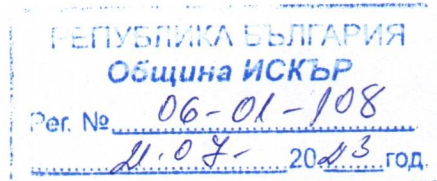 РЕПУБЛИКА БЪЛГАРИЯ
Община ИСКЪР
Рег. № 06-01-108
21.07- 2023 год.